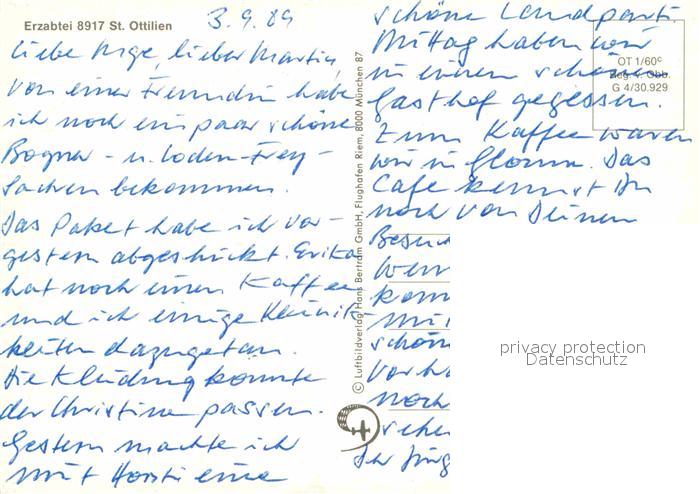 Erzabtei 8917 St. Ottilien
3.9.89
Liebe Inge, lieber Martin,
von einer Freundin habe
ich noch ein paar schöne
Bogner- u. Loden-Frey-
Sachen bekommen.
Das Paket habe ich vor-
gestern abgeschickt. Erika
hat noch einen Kaffee
und ich einige Kleinig-
keiten dazugetan.
Die Kleidung könnte
der Christine passen.
Gestern machte ich
mit Horst eine
schöne Landparti
Mittag haben wir
in einem schönen
Gasthof gegessen.
Zum Kaffee waren
wir in Glonn. Das
Cafe kennst Du
noch von Deinen
Besuch
Wenn
komm
mit
schön
vorha
noch
sehe
Der Jürg
OT 1/60c
Reg. v. Obb.
G 4/30.929
© Luftbildverlag Hans Bertram GmbH, Flughafen Riem, 8000 München 87
privacy protection
Datenschutz